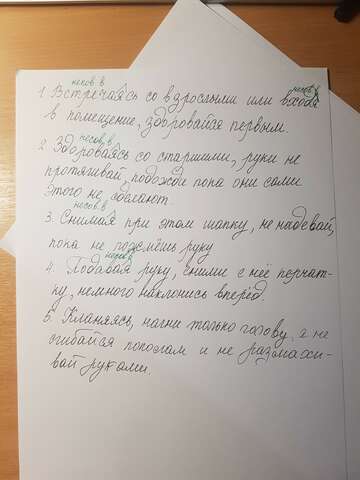 несов. в несов. в
1 Встречаясь со взрослыми или входя
в помещение, здоровайся первым.
несов. в
2 Здороваясь со старшими, руки не
протягивай, подожди пока они сами
этого не сделают.
несов. в
3. Снимая при этом шапку, не надевай,
пока не пожмёшь руку
несов. в
4. Подавая руку, сними с неё перчат-
ку, немного наклонись вперёд.
5. Кланяясь, нагни только голову, а не
сгибайся пополам и не размахи-
вай руками.